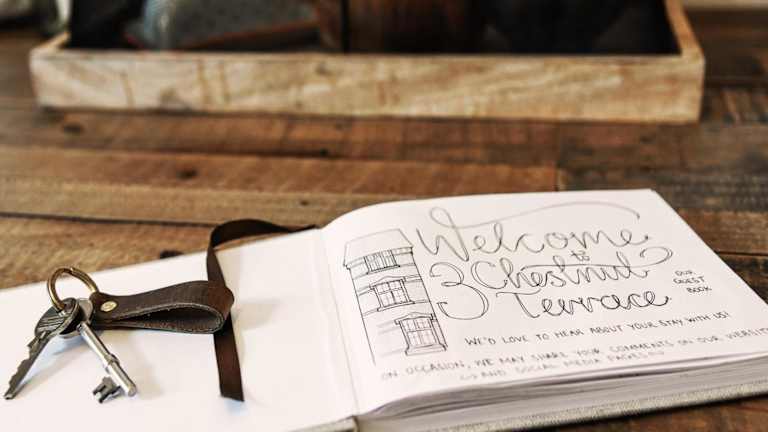 Welcome
to
3 Chestnut
Terrace
OUR
GUEST
BOOK
WE'D LOVE TO HEAR ABOUT YOUR STAY WITH US!
ON OCCASION, WE MAY SHARE YOUR COMMENTS ON OUR WEBSITE
AND SOCIAL MEDIA PAGES